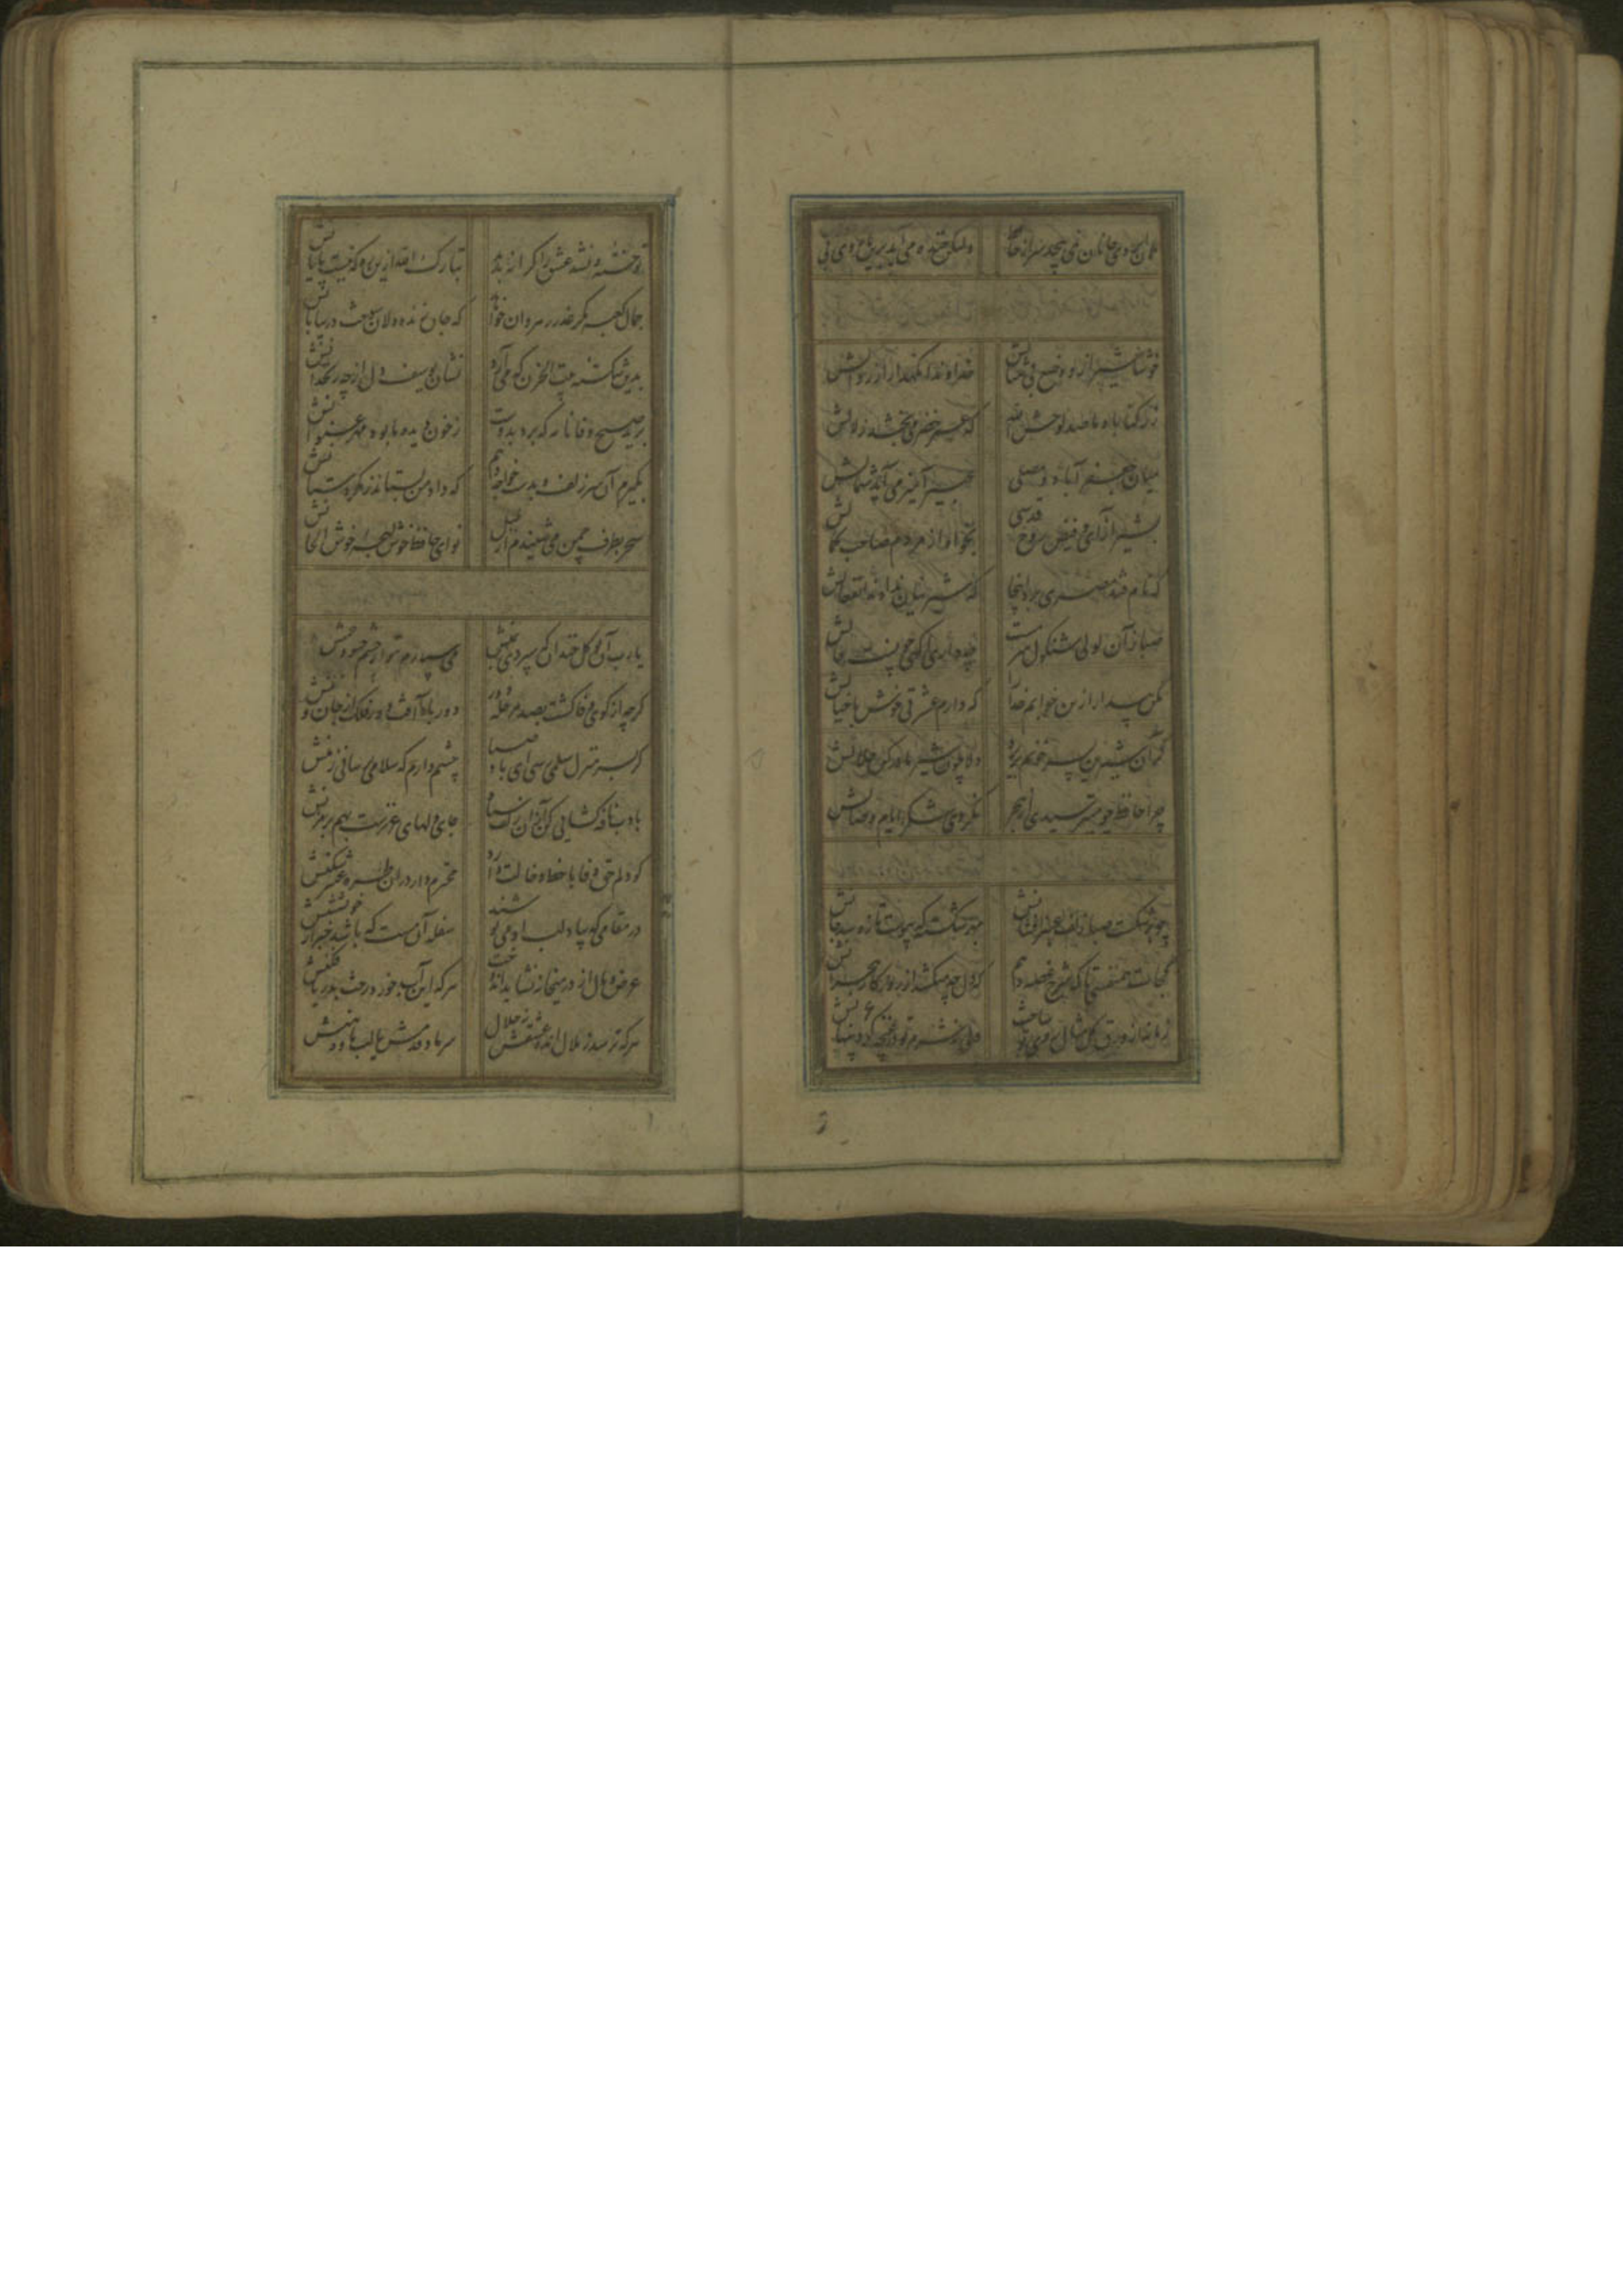 کمان ابروی جانان نمی‌پیچد سر از حافظ ولیکن خنده می‌آید بدین بازوی بی
خوشا شیراز و وضع بی مثالش خداوندا نگهدار از زوالش
ز رکناباد ما صد لوحش الله که عمر خضر می‌بخشد زلالش
میان جعفرآباد و مصلی عبیر آمیز می‌آید شمالش
بشیراز آی و فیض روح قدسی بخواه از مردم صاحب کمالش
که نام قند مصری برد اینجا که شیرینان ندادند انفعالش
صبا زان لولی شنگول سرمست چه داری آگهی چونست حالش
مکن بیدار ازین خوابم خدا را که دارم عشرتی خوش با خیالش
گر آن شیرین پسر خونم بریزد دلا چون شیر مادر کن حلالش
چرا حافظ چو میترسیدی از هجر نکردی شکر ایام وصالش
چو برشکست صبا زلف عنبرافشانش بهر شکسته که پیوست تازه شد جانش
کجاست همنفسی تا که شرح غصه دهم که دل چه میکشد از روزگار هجرانش
زمانه از ورق گل مثال روی تو ساخت ولی ز شرم تو در غنچه کرد پنهانش
تو خفته و نشد عشق را کرانه پدید تبارک الله ازین ره که نیست پایانش
جمال کعبه مگر عذر رهروان خواهد که جان زنده دلان سوخت در بیابانش
بدین شکسته بیت الحزن که می‌آرد نشان یوسف دل از چه زنخدانش
بگیرم آن سر زلف و بدست خواجه دهم که داد من بستاند ز مکر و دستانش
سحر بطرف چمن می‌شنیدم از بلبل نوای حافظ خوش لهجه خوش الحانش
یارب آن نوگل خندان که سپردی بمنش می‌سپارم بتو از چشم حسود چمنش
گرچه از کوی وفا گشت بصد مرحله دور دور باد آفت دور فلک از جان و تنش
گر بسرمنزل سلمی رسی ای باد صبا چشم دارم که سلامی برسانی ز منش
بادب نافه گشایی کن از آن زلف سیاه جای دلهای عزیزست بهم برمزنش
گو دلم حق وفا با خط و خالت دارد محترم دار در آن طره عنبرشکنش
در مقامی که بیاد لب او می نوشند سفله آن مست که باشد خبر از خویشتنش
عرض و مال از در میخانه نشاید اندوخت هرکه این آب خورد رخت بدریا فکنش
هرکه ترسد ز ملال انده عشقش نه حلال سر ما و قدمش یا لب ما و دهنش